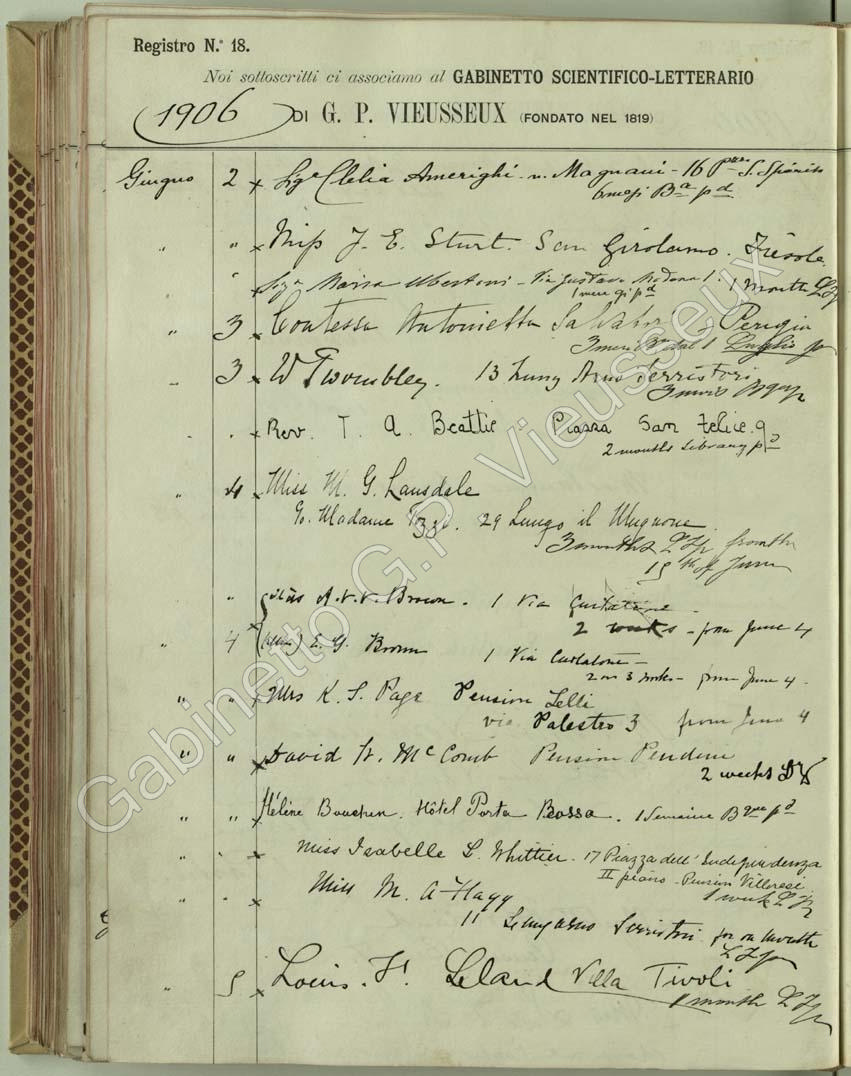 Registro N.° 18.
Noi sottoscritti ci associamo al GABINETTO SCIENTIFICO-LETTERARIO
1906 DI G. P. VIEUSSEUX (FONDATO NEL 1819)
Giugno 2 x Sigra Clelia Amerighi n. Magnani - 16
6 mesi pd
" " x Miss J. E. Sturt. San Girolamo. Fiesole.
" x Maria Ubertoni - Via Gustavo Modena 1. 1 month
" 3 x Contessa Antonietta Perugia
3 mesi dal 1 Luglio
3 x W Twombley. 13 Lung Arno Serristori
. x Rev. T. A. Beattie Piazza San Felice. 9
2 months Library pd
" 4 x Miss M. G. Lansdale
c/o. Madame 29 Lungo il Mugnone
3 months from the
15th of June
" Miss A. V. V. Brown. 1 Via Curtatone
2 weeks - from June 4
" 4 x E. G. Brown 1 Via Curtatone -
2 or 3 weeks - from June 4.
" " x Mrs K. S. Page Pension Lelli
via Palestro 3 from June 4
" " x David H. McComb Pension Pendini
2 weeks
" " x Hélène Hôtel Porta Rossa. 1 Semaine pd
" " x Miss Isabelle L. Whittier. 17 Piazza dell' Independenza
II piano - Pension Villoresi
1 week
" " x Miss M. A. Hagg
11 Lungarno Serristori for on month
" 5 x Louis. Leland Villa Tivoli
1 month
Gabinetto G.P. Vieusseux